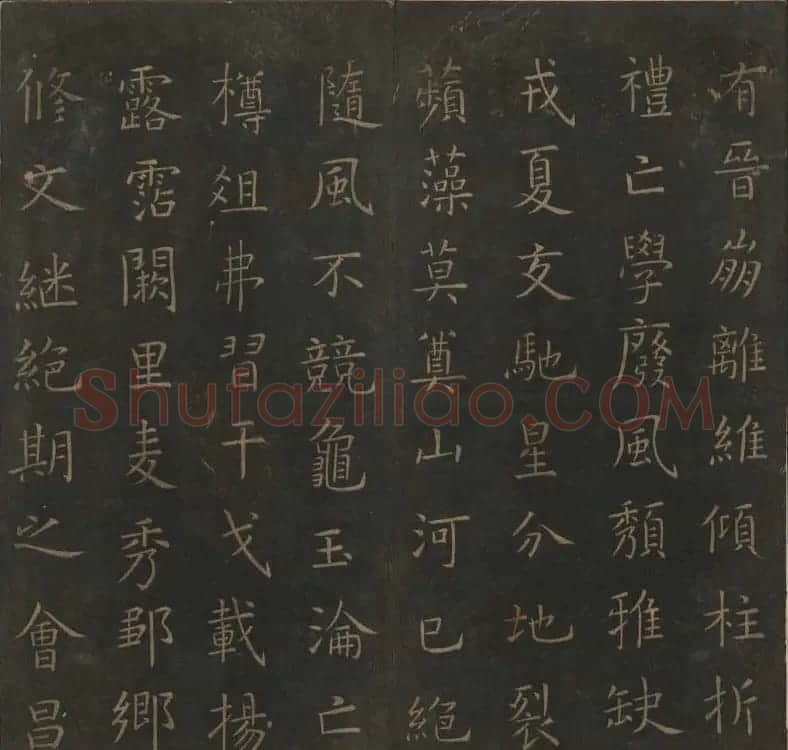 有晉崩離維傾柱折
禮亡學廢風頽雅缺
戎夏交馳星分地裂
蘋藻莫奠山河已絶
隨風不競龜玉淪亡
樽俎弗習干戈載揚
露霑闕里麦秀鄒鄉
修文継絶期之會昌
Shufaziliao.COM